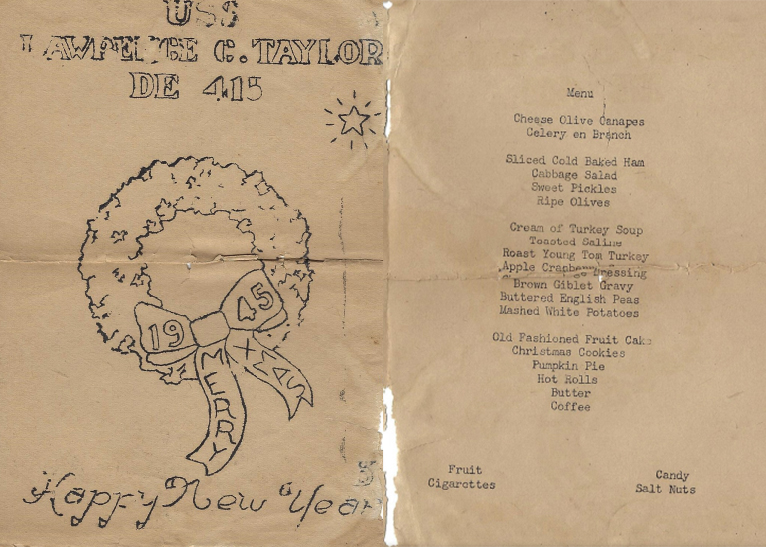 USS
LAWRENCE C. TAYLOR
DE 415
19 45
MERRY
XMAS
Happy New Year
Menu
Cheese Olive Canapes
Celery en Branch
Sliced Cold Baked Ham
Cabbage Salad
Sweet Pickles
Ripe Olives
Cream of Turkey Soup
Toasted Saline
Roast Young Tom Turkey
Apple Cranberry Dressing
Brown Giblet Gravy
Buttered English Peas
Mashed White Potatoes
Old Fashioned Fruit Cake
Christmas Cookies
Pumpkin Pie
Hot Rolls
Butter
Coffee
Fruit
Cigarettes
Candy
Salt Nuts